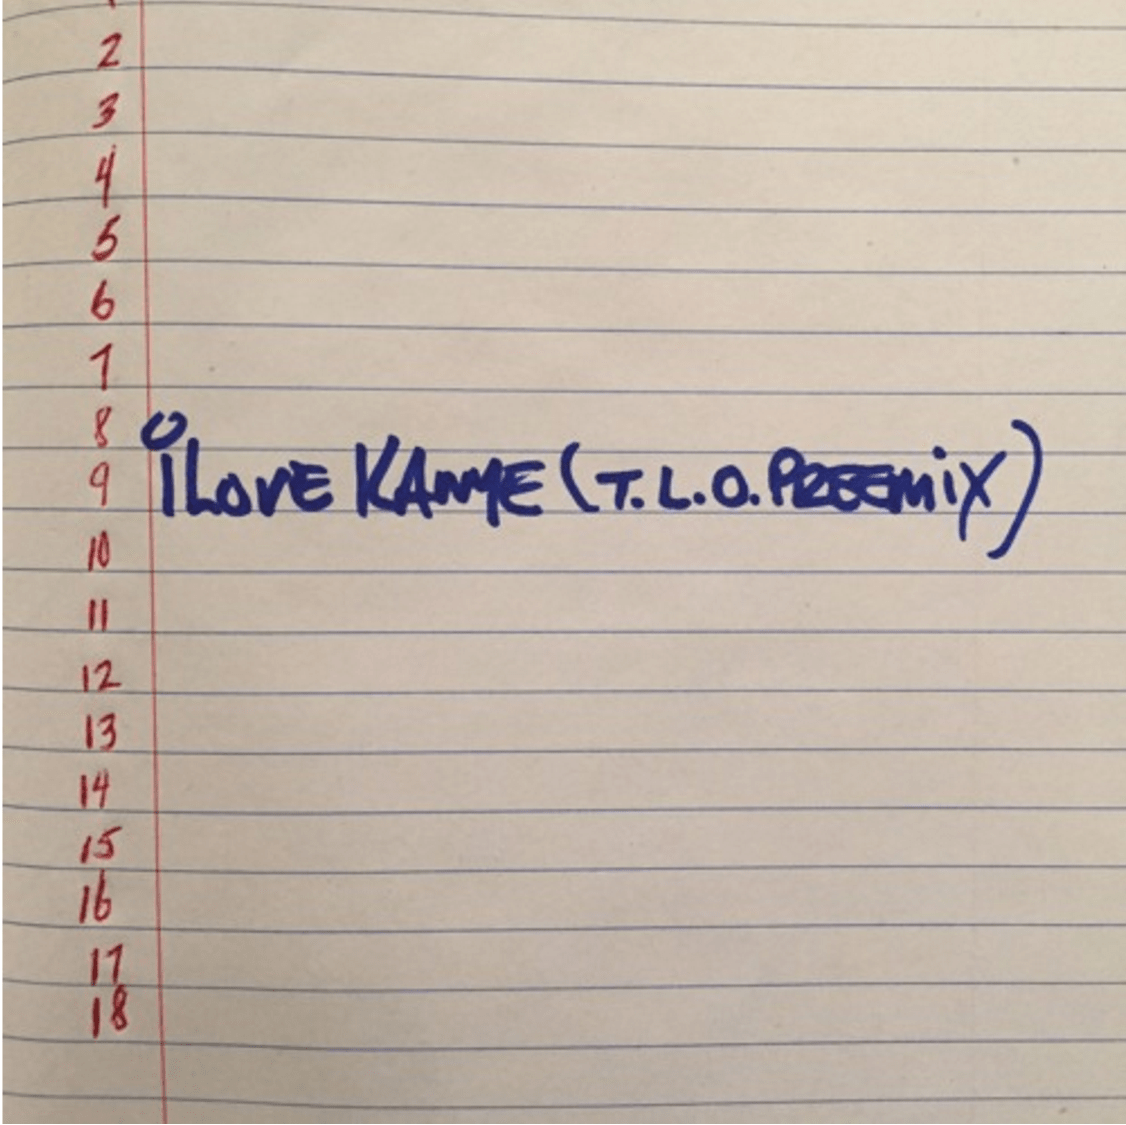 2
3
4
5
6
7
8
9 iLOVE KANYE (T.L.O. PREEMiX)
10
11
12
13
14
15
16
17
18